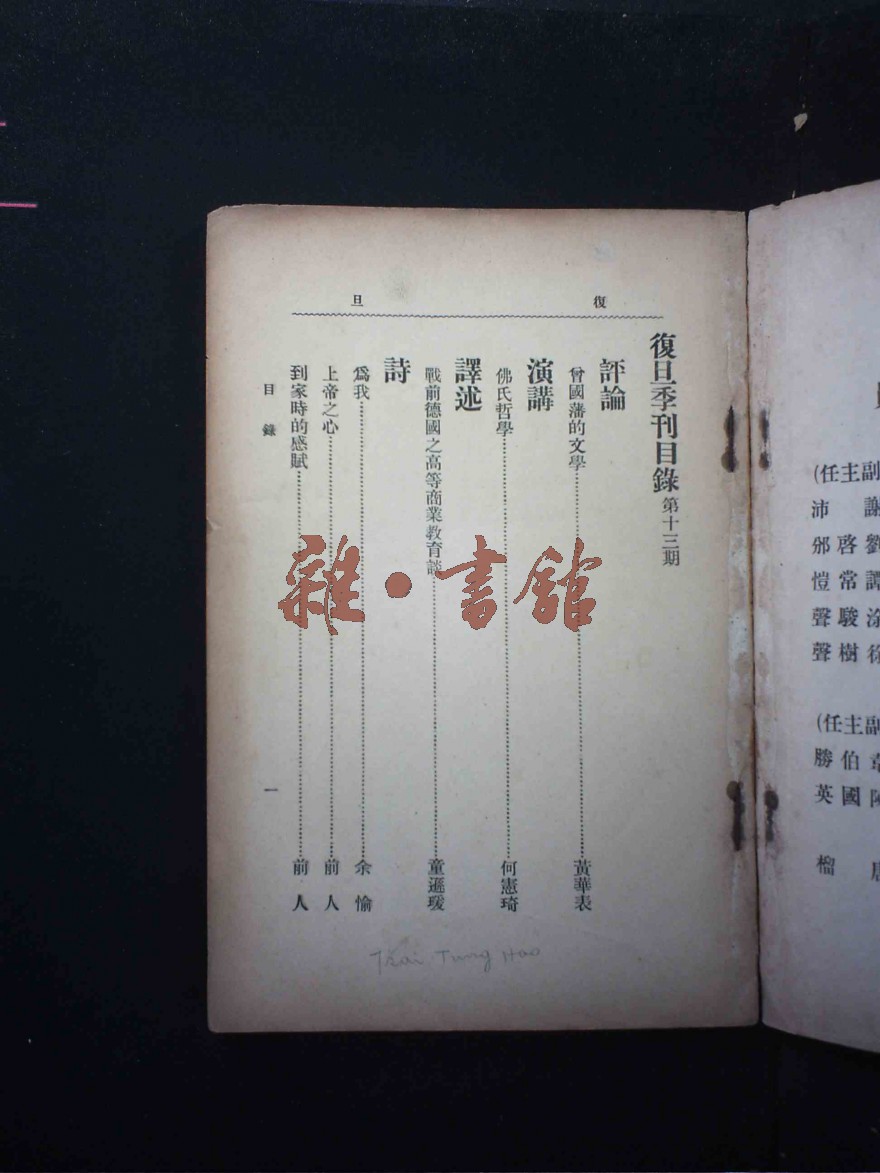 復旦
復旦季刊目錄 第十三期
評論
曾國藩的文學 黃華表
演講
佛氏哲學 何憲琦
譯述
戰前德國之高等商業教育談 童遜瑗
詩
爲我 余愉
上帝之心 前人
到家時的感賦 前人
目錄 一
Tsai Tung Hao
雜·書館
(任主副
沛 謝
邠啓劉
愷常譚
聲駿涂
聲樹徐
(任主副
勝伯章
英國陳
榴 唐